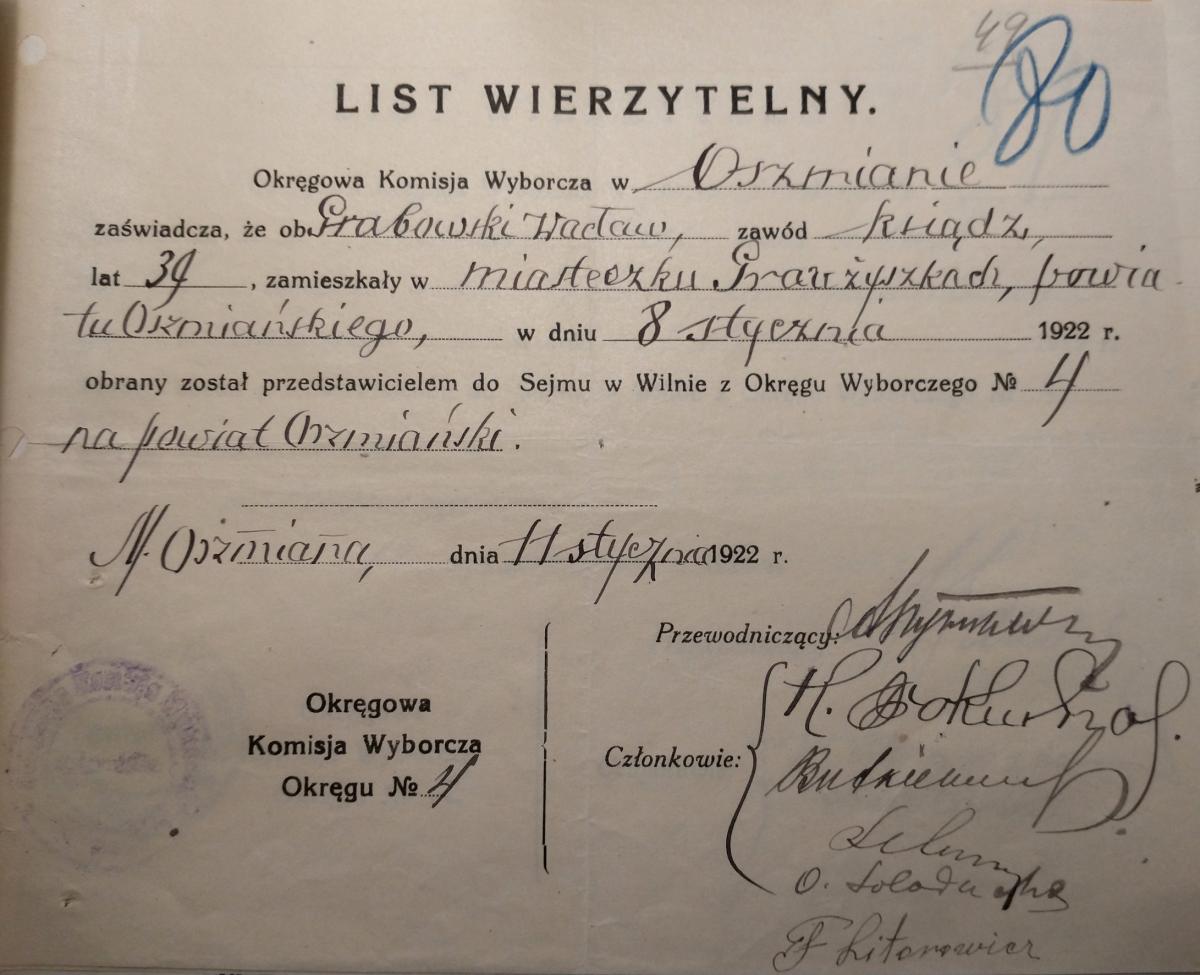 49
80
LIST WIERZYTELNY.
Okręgowa Komisja Wyborcza w Oszmianie
zaświadcza, że ob. Grabowski Wacław, zawód ksiądz,
lat 39, zamieszkały w miasteczku Graużyszkach, powia-
tu Oszmiańskiego, w dniu 8 stycznia 1922 r.
obrany został przedstawicielem do Sejmu w Wilnie z Okręgu Wyborczego № 4
na powiat Oszmiański.
M. Oszmiana, dnia 11 stycznia 1922 r.
Przewodniczący:
Okręgowa
Komisja Wyborcza
Okręgu № 4
Członkowie:
O.
F Litorowicz